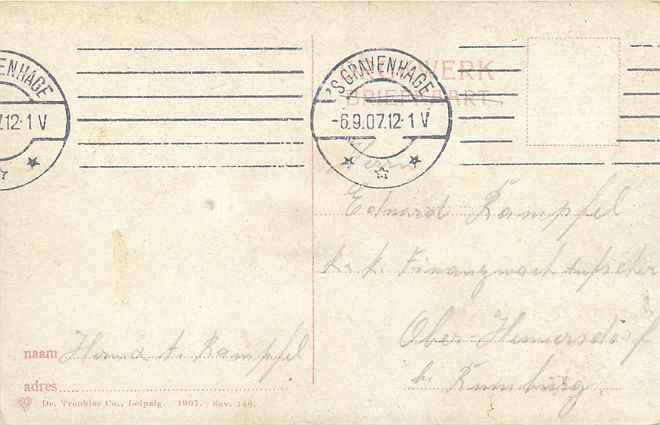 VENHAGE
7.12-1 V
'S GRAVENHAGE
-6.9.07.12-1 V
BRIEFKAART
Herrn
Eduard Kampfel
k. k. Finanzwach Aufseher
Ober Hennersdorf
b. Rumburg.
naam Herma A. Kampfel
adres
Dr. Trenkler Co., Leipzig. 1907. Sav. 146.